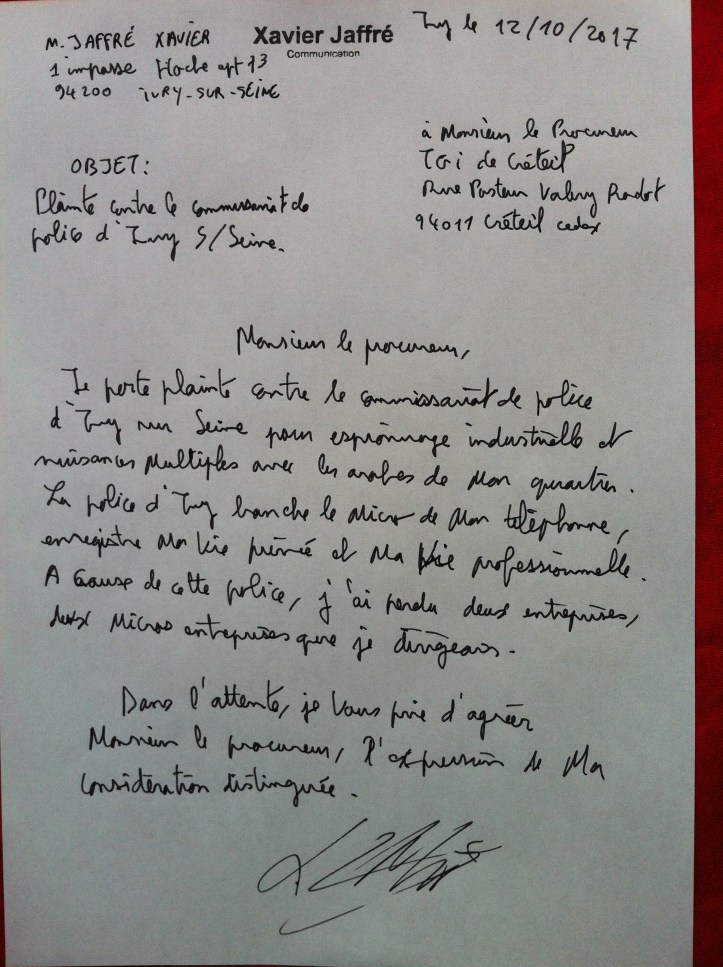 M. JAFFRÉ XAVIER
1 impasse Hoche apt 13
94200 IVRY-SUR-SEINE
Xavier Jaffré
Communication
Ivry le 12/10/2017
à Monsieur le Procureur
TGI de Créteil
Rue Pasteur Valery Radot
94011 Créteil cedex
OBJET:
Plainte contre le commissariat de
police d'Ivry S/Seine.
Monsieur le procureur,
Je porte plainte contre le commissariat de police
d'Ivry sur Seine pour espionnage industrielle et
nuisances multiples avec les arabes de mon quartier.
La police d'Ivry branche le micro de mon téléphonne,
enregistre ma vie privée et ma vie professionnelle.
A cause de cette police, j'ai perdu deux entreprises,
deux micros entreprises que je dirigeais.
Dans l'attente, je vous prie d'agréer
Monsieur le procureur, l'expression de ma
considération distinguée.